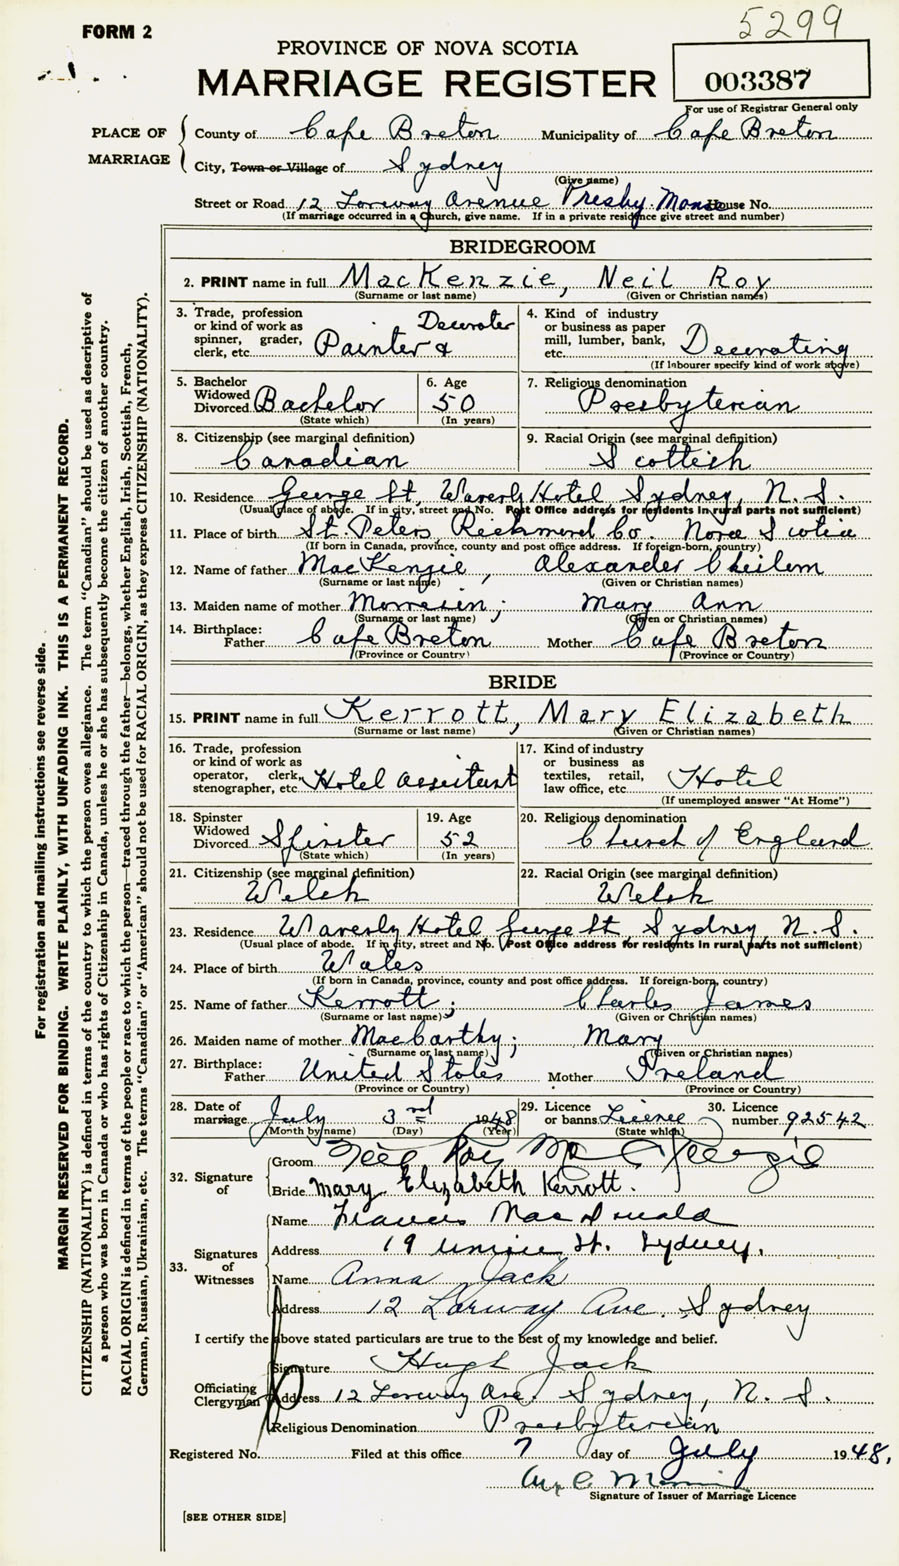 5299
FORM 2
PROVINCE OF NOVA SCOTIA
MARRIAGE REGISTER
003387
For use of Registrar General only
PLACE OF MARRIAGE
County of Cape Breton Municipality of Cape Breton
City, Town or Village of Sydney
(Give name)
Street or Road 12 Lorway Avenue Presby. Manse House No.
(If marriage occurred in a Church, give name. If in a private residence give street and number)
BRIDEGROOM
2. PRINT name in full MacKenzie, Neil Roy
(Surname or last name) (Given or Christian names)
3. Trade, profession or kind of work as spinner, grader, clerk, etc. Painter & Decorater
4. Kind of industry or business as paper mill, lumber, bank, etc. Decorating
(If labourer specify kind of work above)
5. Bachelor Widowed Divorced Bachelor
(State which)
6. Age 50
(In years)
7. Religious denomination
Presbyterian
8. Citizenship (see marginal definition)
Canadian
9. Racial Origin (see marginal definition)
Scottish
10. Residence George St. Waverly Hotel Sydney, N. S.
(Usual place of abode. If in city, street and No. Post Office address for residents in rural parts not sufficient)
11. Place of birth St. Peters Richmond Co. Nova Scotia
(If born in Canada, province, county and post office address. If foreign-born, country)
12. Name of father MacKenzie, Alexander
(Surname or last name) (Given or Christian names)
13. Maiden name of mother Morrison; Mary Ann
(Surname or last name) (Given or Christian names)
14. Birthplace: Father Cape Breton Mother Cape Breton
(Province or Country) (Province or Country)
BRIDE
15. PRINT name in full Kerrott, Mary Elizabeth
(Surname or last name) (Given or Christian names)
16. Trade, profession or kind of work as operator, clerk, stenographer, etc. Hotel assistant
17. Kind of industry or business as textiles, retail, law office, etc. Hotel
(If unemployed answer "At Home")
18. Spinster Widowed Divorced Spinster
(State which)
19. Age 52
(In years)
20. Religious denomination
Church of England
21. Citizenship (see marginal definition)
Welsh
22. Racial Origin (see marginal definition)
Welsh
23. Residence Waverly Hotel George St Sydney, N. S.
(Usual place of abode. If in city, street and No. Post Office address for residents in rural parts not sufficient)
24. Place of birth Wales
(If born in Canada, province, county and post office address. If foreign-born, country)
25. Name of father Kerrott; Charles James
(Surname or last name) (Given or Christian names)
26. Maiden name of mother MacCarthy; Mary
(Surname or last name) (Given or Christian names)
27. Birthplace: Father United States Mother Ireland
(Province or Country) (Province or Country)
28. Date of marriage July 3rd 1948
(Month by name) (Day) (Year)
29. Licence or banns Licence
(State which)
30. Licence number 92542
32. Signature of
Groom Neil Roy MacKenzie
Bride Mary Elizabeth Kerrott.
33. Signatures of Witnesses
Name Frances MacDonald
Address 19 Union St. Sydney.
Name Anna Jack
Address 12 Lorway Ave. Sydney
I certify the above stated particulars are true to the best of my knowledge and belief.
Officiating Clergyman
Signature Hugh Jack
Address 12 Lorway Ave. Sydney, N. S.
Religious Denomination Presbyterian
Registered No. Filed at this office 7 day of July 1948.
Signature of Issuer of Marriage Licence
[SEE OTHER SIDE]
For registration and mailing instructions see reverse side.
MARGIN RESERVED FOR BINDING. WRITE PLAINLY, WITH UNFADING INK. THIS IS A PERMANENT RECORD.
CITIZENSHIP (NATIONALITY) is defined in terms of the country to which the person owes allegiance. The term "Canadian" should be used as descriptive of
a person who was born in Canada or who has rights of Citizenship in Canada, unless he or she has subsequently become the citizen of another country.
RACIAL ORIGIN is defined in terms of the people or race to which the person—traced through the father—belongs, whether English, Irish, Scottish, French,
German, Russian, Ukrainian, etc. The terms "Canadian" or "American" should not be used for RACIAL ORIGIN, as they express CITIZENSHIP (NATIONALITY).